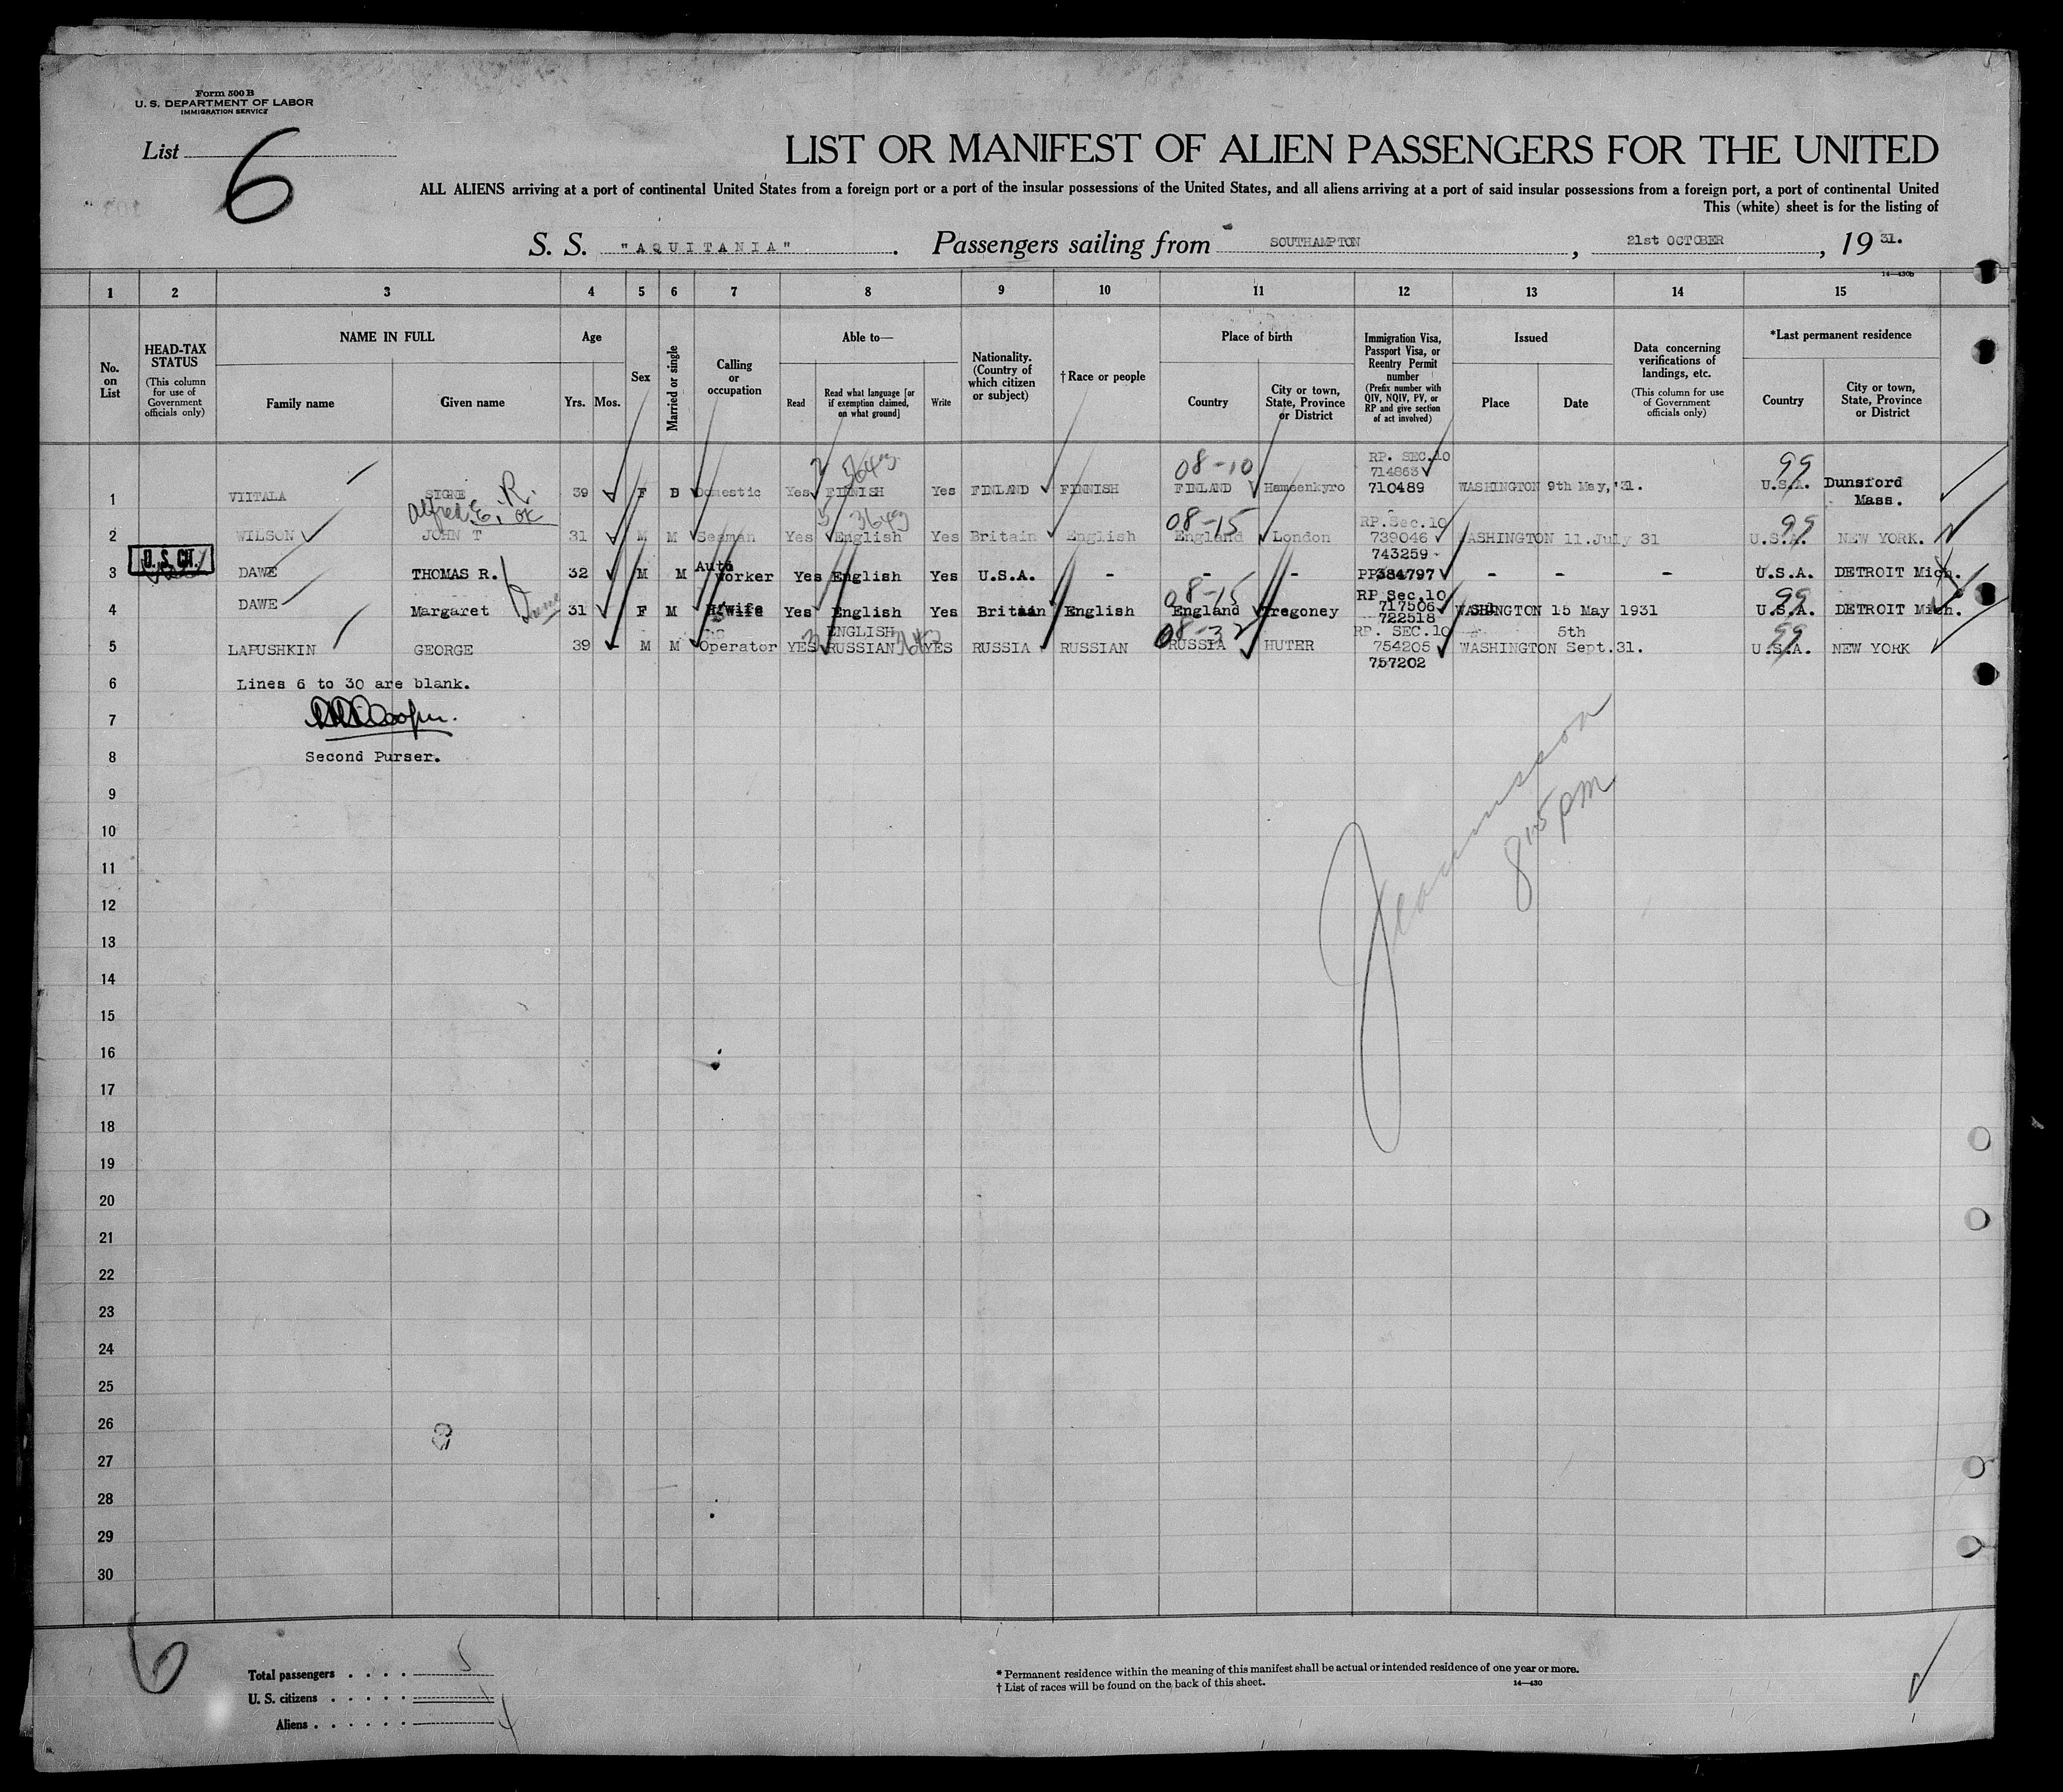 Form 500 B
U. S. DEPARTMENT OF LABOR
IMMIGRATION SERVICE
List 6
LIST OR MANIFEST OF ALIEN PASSENGERS FOR THE UNITED
ALL ALIENS arriving at a port of continental United States from a foreign port or a port of the insular possessions of the United States, and all aliens arriving at a port of said insular possessions from a foreign port, a port of continental United
This (white) sheet is for the listing of
S. S. "AQUITANIA". Passengers sailing from SOUTHAMPTON, 21st OCTOBER, 19 31.
14—430b
1 2 3 4 5 6 7 8 9 10 11 12 13 14 15
No. on List
HEAD-TAX STATUS (This column for use of Government officials only)
NAME IN FULL
Family name Given name
Age
Yrs. Mos.
Sex
Married or single
Calling or occupation
Able to—
Read Read what language [or if exemption claimed, on what ground] Write
Nationality. (Country of which citizen or subject)
† Race or people
Place of birth
Country City or town, State, Province or District
Immigration Visa, Passport Visa, or Reentry Permit number (Prefix number with QIV, NQIV, PV, or RP and give section of act involved)
Issued
Place Date
Data concerning verifications of landings, etc. (This column for use of Government officials only)
*Last permanent residence
Country City or town, State, Province or District
08-10 RP. SEC.10 99
714863
1 VIITALA SIGNE R. 39 F Domestic Yes FINNISH Yes FINLAND FINNISH FINLAND Hameenkyro 710489 WASHINGTON 9th May,'31. U.S.A. Dunsford Mass.
Alfred E. OK 08-15 RP.Sec.10 99
2 WILSON JOHN T 31 M M Seaman Yes English Yes Britain English England London 739046 WASHINGTON 11.July 31 U.S.A. NEW YORK.
743259
U.S. CIT.
3 DAWE THOMAS R. 32 M M Auto Worker Yes English Yes U.S.A. - - - PP384797 - - - U.S.A. DETROIT Mich.
08-15 RP Sec.10 99
4 DAWE Margaret 31 F M H'Wife Yes English Yes Britain English England Tregoney 717506 WASHINGTON 15 May 1931 U.S.A. DETROIT Mich.
722518
ENGLISH 08-32 RP. SEC.10 5th 99
5 LAPUSHKIN GEORGE 39 M M Operator YES RUSSIAN YES RUSSIA RUSSIAN RUSSIA HUTER 754205 WASHINGTON Sept.31. U.S.A. NEW YORK
757202
6 Lines 6 to 30 are blank.
7
8 Second Purser.
9
10
11
12
13
14
15
16
17
18
19
20
21
22
23
24
25
26
27
28
29
30
815 pm
6
Total passengers . . . . 5
U. S. citizens . . . . . 1
Aliens . . . . . . 4
* Permanent residence within the meaning of this manifest shall be actual or intended residence of one year or more.
† List of races will be found on the back of this sheet.
14—430